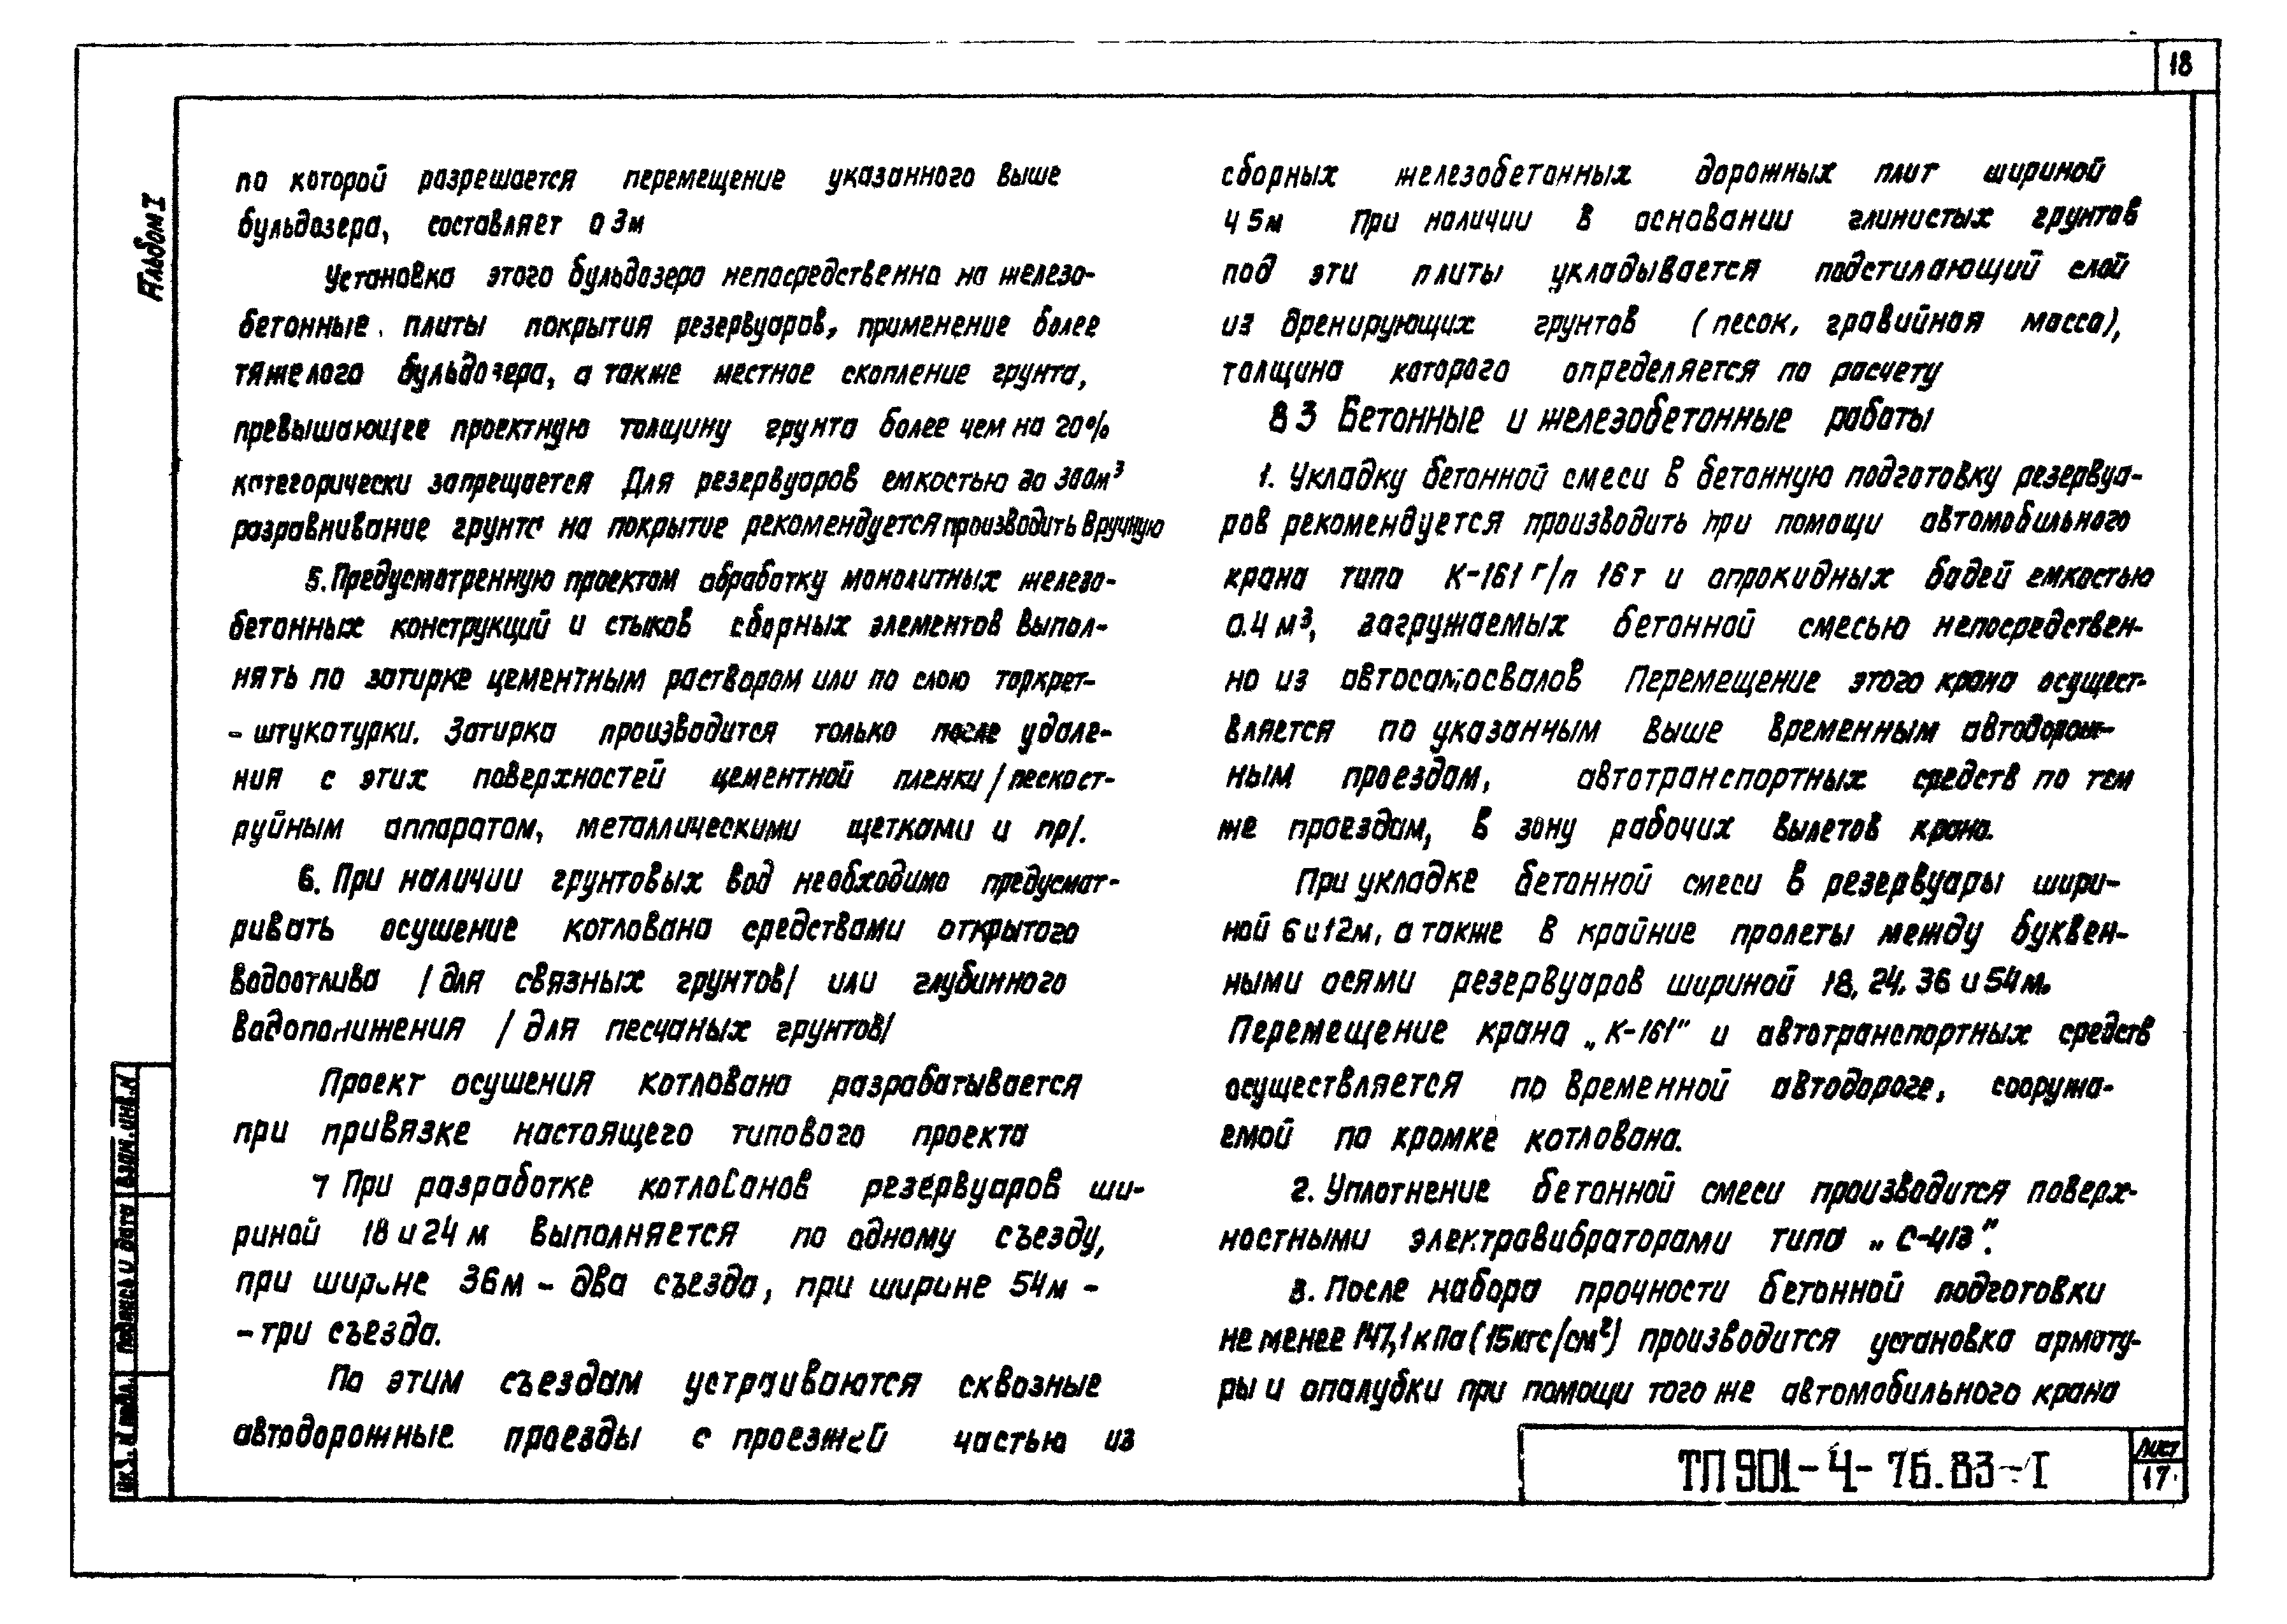 18
Альбом I
по которой разрешается перемещение указанного выше
бульдозера, составляет 0 3м
Установка этого бульдозера непосредственно на железо-
бетонные плиты покрытия резервуаров, применение более
тяжелого бульдозера, а также местное скопление грунта,
превышающее проектную толщину грунта более чем на 20%
категорически запрещается Для резервуаров емкостью до 300м³
разравнивание грунта на покрытие рекомендуется производить вручную
5. Предусмотренную проектом обработку монолитных железо-
бетонных конструкций и стыков сборных элементов выпол-
нять по затирке цементным раствором или по слою торкрет-
- штукатурки. Затирка производится только после удале-
ния с этих поверхностей цементной пленки /пескост-
руйным аппаратом, металлическими щетками и пр/.
6. При наличии грунтовых вод необходимо предусмат-
ривать осушение котлована средствами открытого
водоотлива /для связных грунтов/ или глубинного
водопонижения /для песчаных грунтов/
Проект осушения котлована разрабатывается
при привязке настоящего типового проекта
7 При разработке котлованов резервуаров ши-
риной 18 и 24 м выполняется по одному съезду,
при ширине 36м - два съезда, при ширине 54м -
- три съезда.
По этим съездам устраиваются сквозные
автодорожные проезды с проезжей частью из
сборных железобетонных дорожных плит шириной
4 5м При наличии в основании глинистых грунтов
под эти плиты укладывается подстилающий слой
из дренирующих грунтов (песок, гравийная масса),
толщина которого определяется по расчету
8 3 Бетонные и железобетонные работы
1. Укладку бетонной смеси в бетонную подготовку резервуа-
ров рекомендуется производить при помощи автомобильного
крана типа К-161 г/п 16т и опрокидных бадей емкостью
0.4 м³, загружаемых бетонной смесью непосредствен-
но из автосамосвалов Перемещение этого крана осущест-
вляется по указанным выше временным автодорож-
ным проездам, автотранспортных средств по тем
же проездам, в зону рабочих вылетов крана.
При укладке бетонной смеси в резервуары шири-
ной 6 и 12м, а также в крайние пролеты между буквен-
ными осями резервуаров шириной 18, 24, 36 и 54м.
Перемещение крана „К-161" и автотранспортных средств
осуществляется по временной автодороге, сооружа-
емой по кромке котлована.
2. Уплотнение бетонной смеси производится поверх-
ностными электровибраторами типа „С-413".
3. После набора прочности бетонной подготовки
не менее 147,1кПа (15кгс/см²) производится установка армату-
ры и опалубки при помощи того же автомобильного крана
Инв. N подл. Подпись и дата Взам. инв. N
ТП 901-4-76.83-I
Лист
17